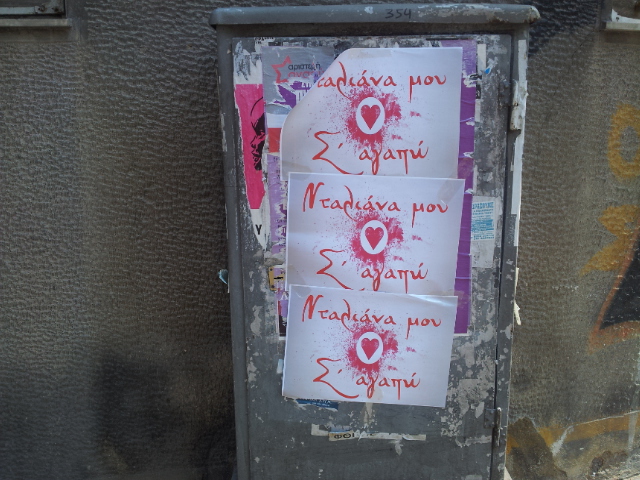 354
αριστερή
Νταλιάνα μου
Σ' αγαπώ
Νταλιάνα μου
Σ' αγαπώ
Νταλιάνα μου
Σ' αγαπώ
ΦΟΙ